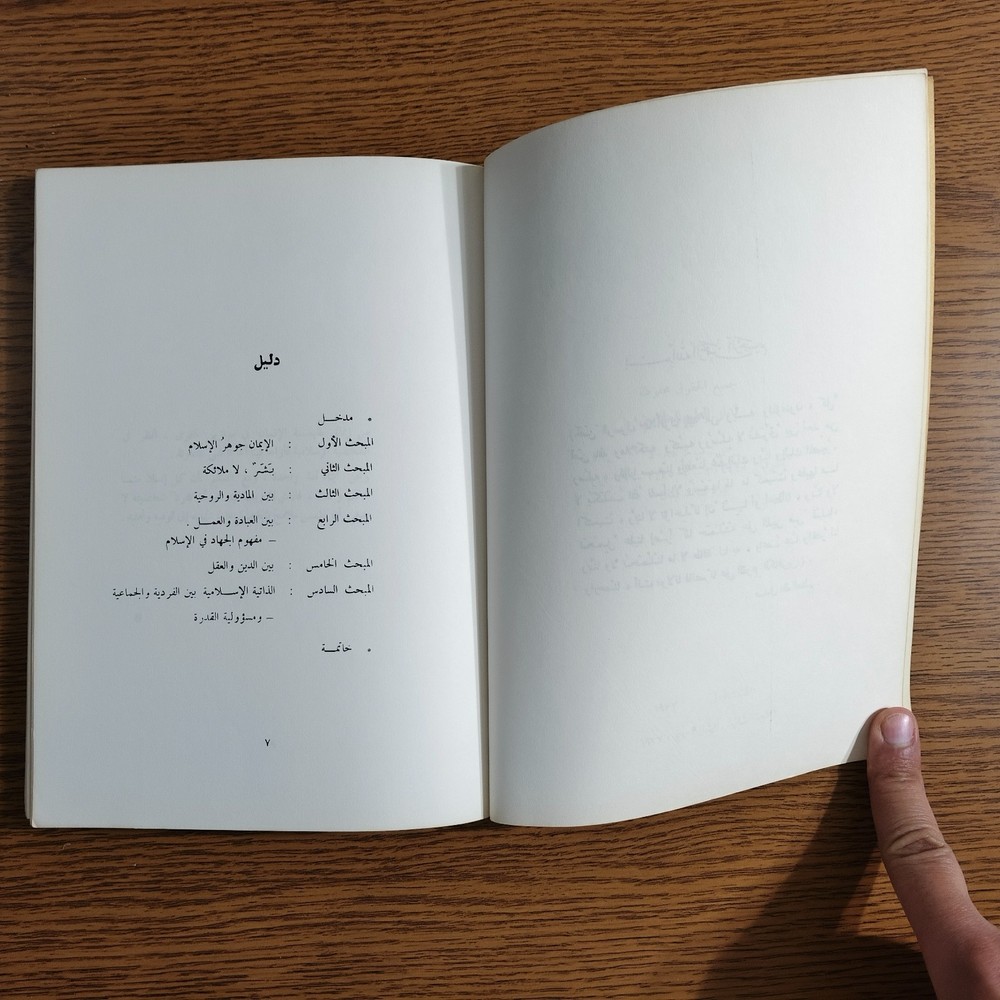 دليل
* مدخـــل
المبحث الأول : الإيمان جوهرُ الإسلام
المبحث الثاني : بَشَرٌ ، لا ملائكة
المبحث الثالث : بين المادية والروحية
المبحث الرابع : بين العبادة والعمــل .
– مفهوم الجهاد في الإسلام
المبحث الخامس : بين الدين والعقل
المبحث السادس : الذاتية الإســلامية بين الفردية والجماعية
– ومسؤولية القدرة
* خاتمــة
٧